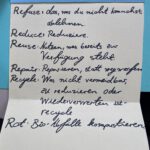 Refuse: das, was du nicht brauchst
ablehnen
Reduce: Reduziere.
Reuse: Nutzen, was bereits zur
Verfügung steht
Repair: Reparieren, statt wegwerfen
Recycle: Was nicht vermeidbar,
zu reduzieren oder
Wiederverwerten ist
recycle
Rot: Bio-Abfälle kompostieren